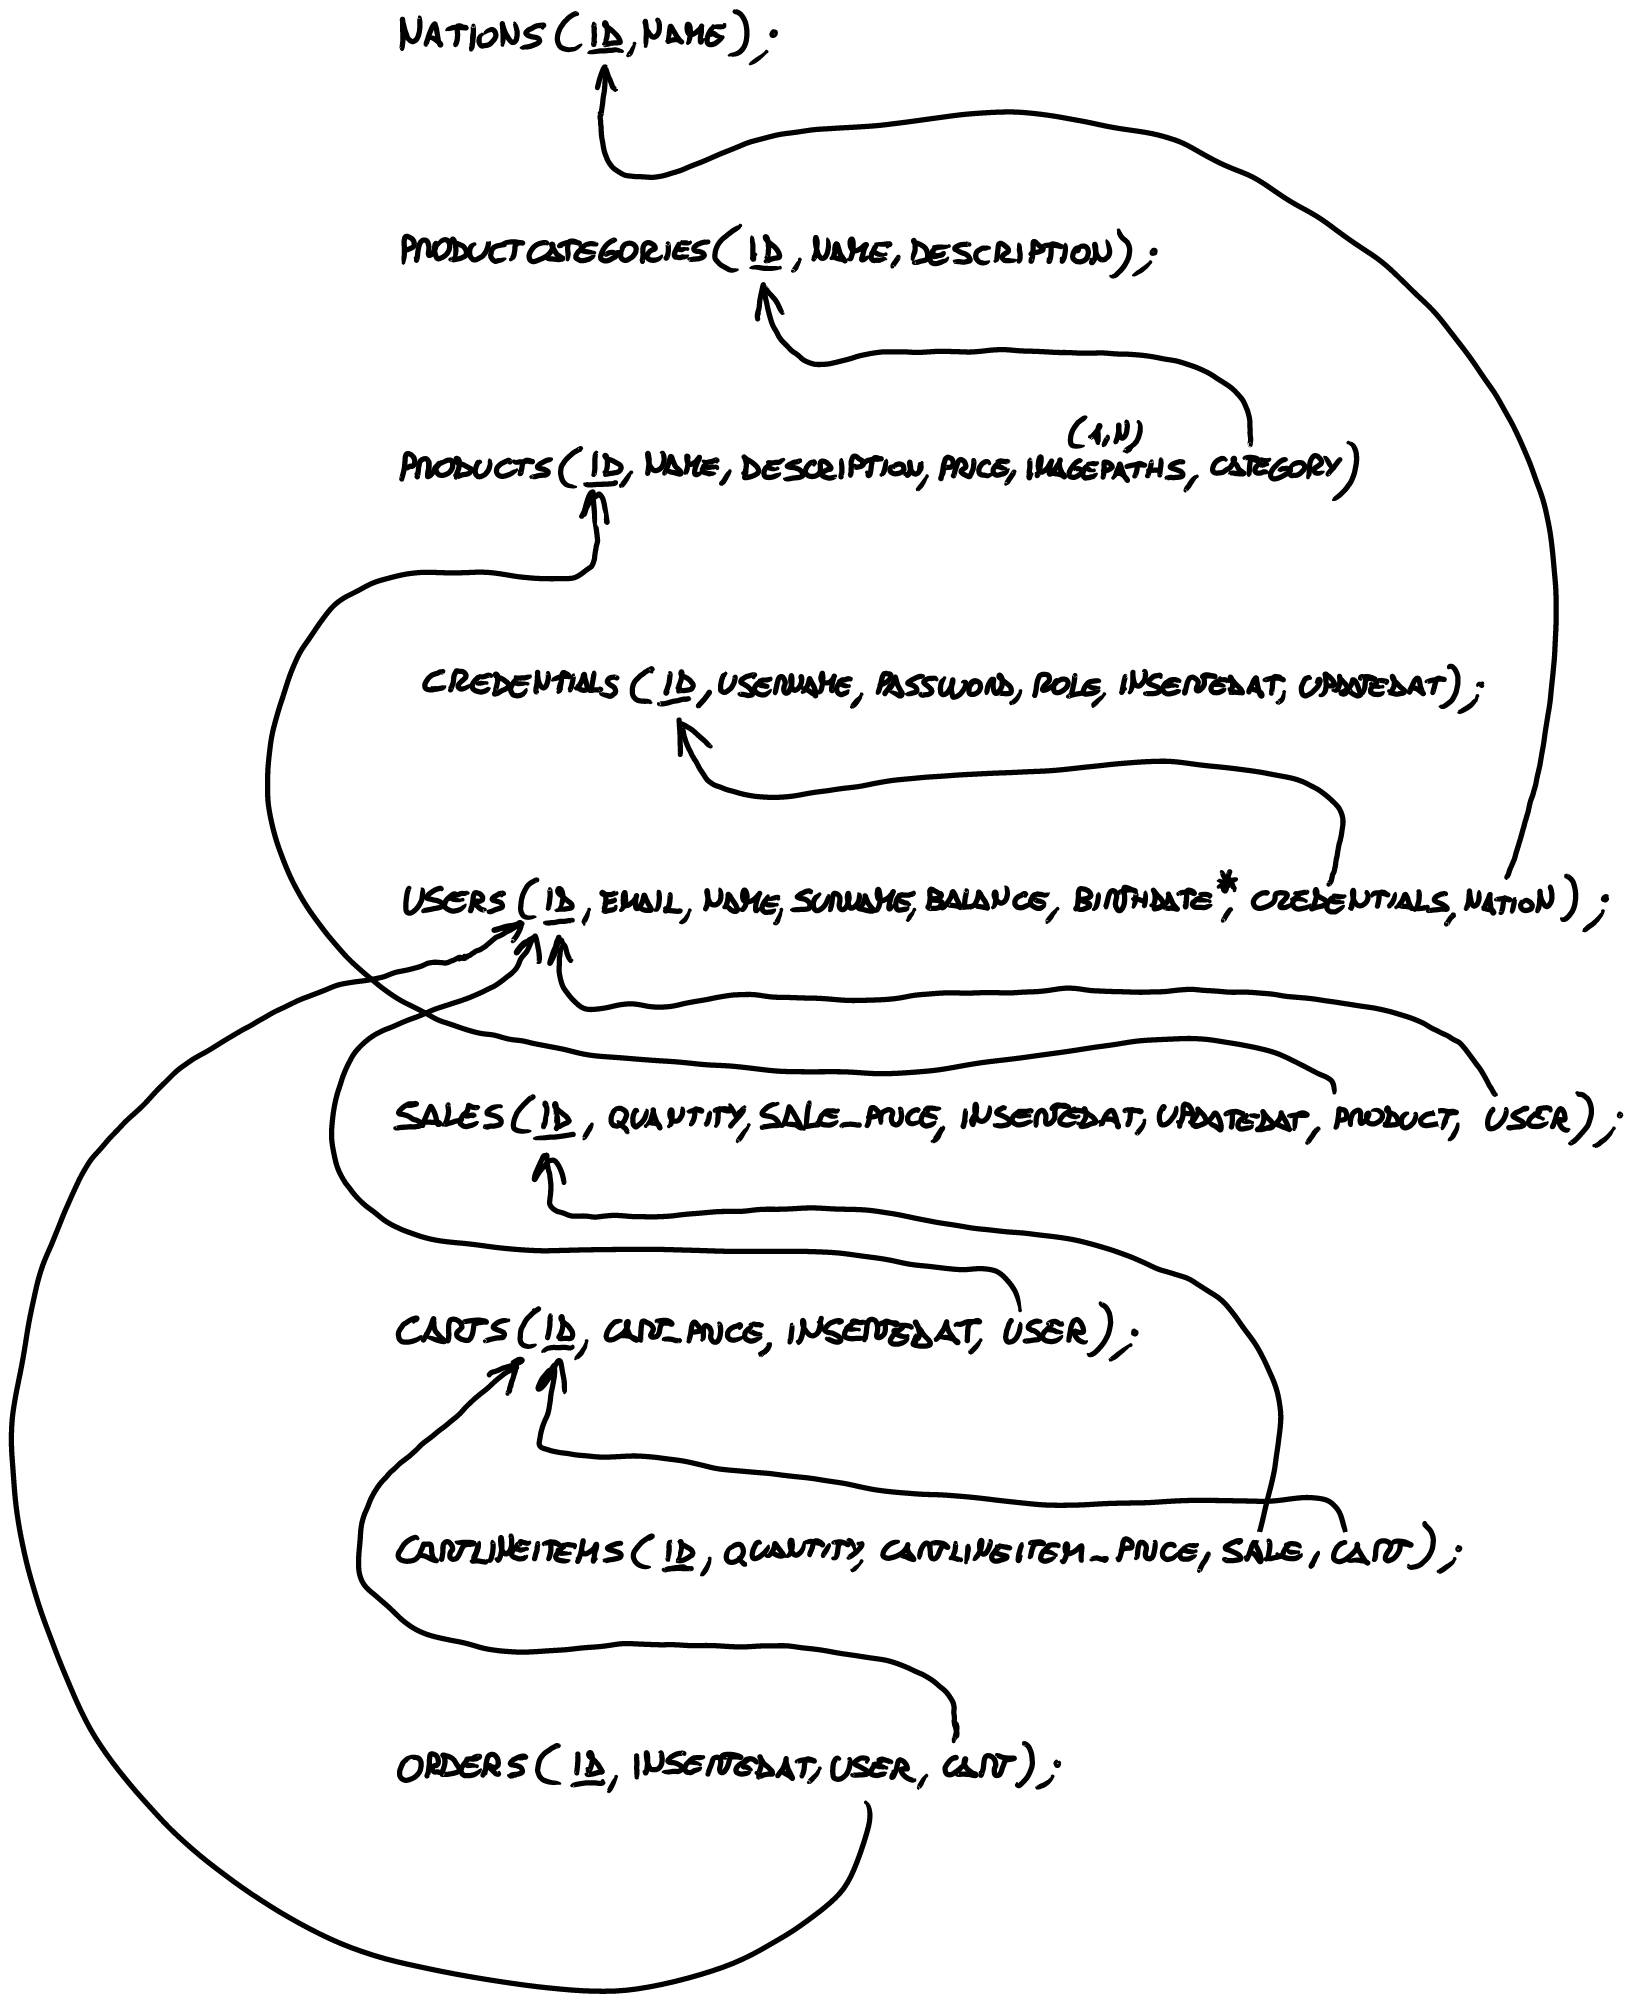 NATIONS(ID, NAME);
PRODUCTCATEGORIES(ID, NAME, DESCRIPTION);
(1,N)
PRODUCTS(ID, NAME, DESCRIPTION, PRICE, IMAGEPATHS, CATEGORY)
CREDENTIALS(ID, USERNAME, PASSWORD, ROLE, INSERTEDAT, UPDATEDAT);
USERS(ID, EMAIL, NAME, SURNAME, BALANCE, BIRTHDATE*, CREDENTIALS, NATION);
SALES(ID, QUANTITY, SALE_PRICE, INSERTEDAT, UPDATEDAT, PRODUCT, USER);
CARTS(ID, CART_PRICE, INSERTEDAT, USER);
CARTLINEITEMS(ID, QUANTITY, CARTLINEITEM_PRICE, SALE, CART);
ORDERS(ID, INSERTEDAT, USER, CART);